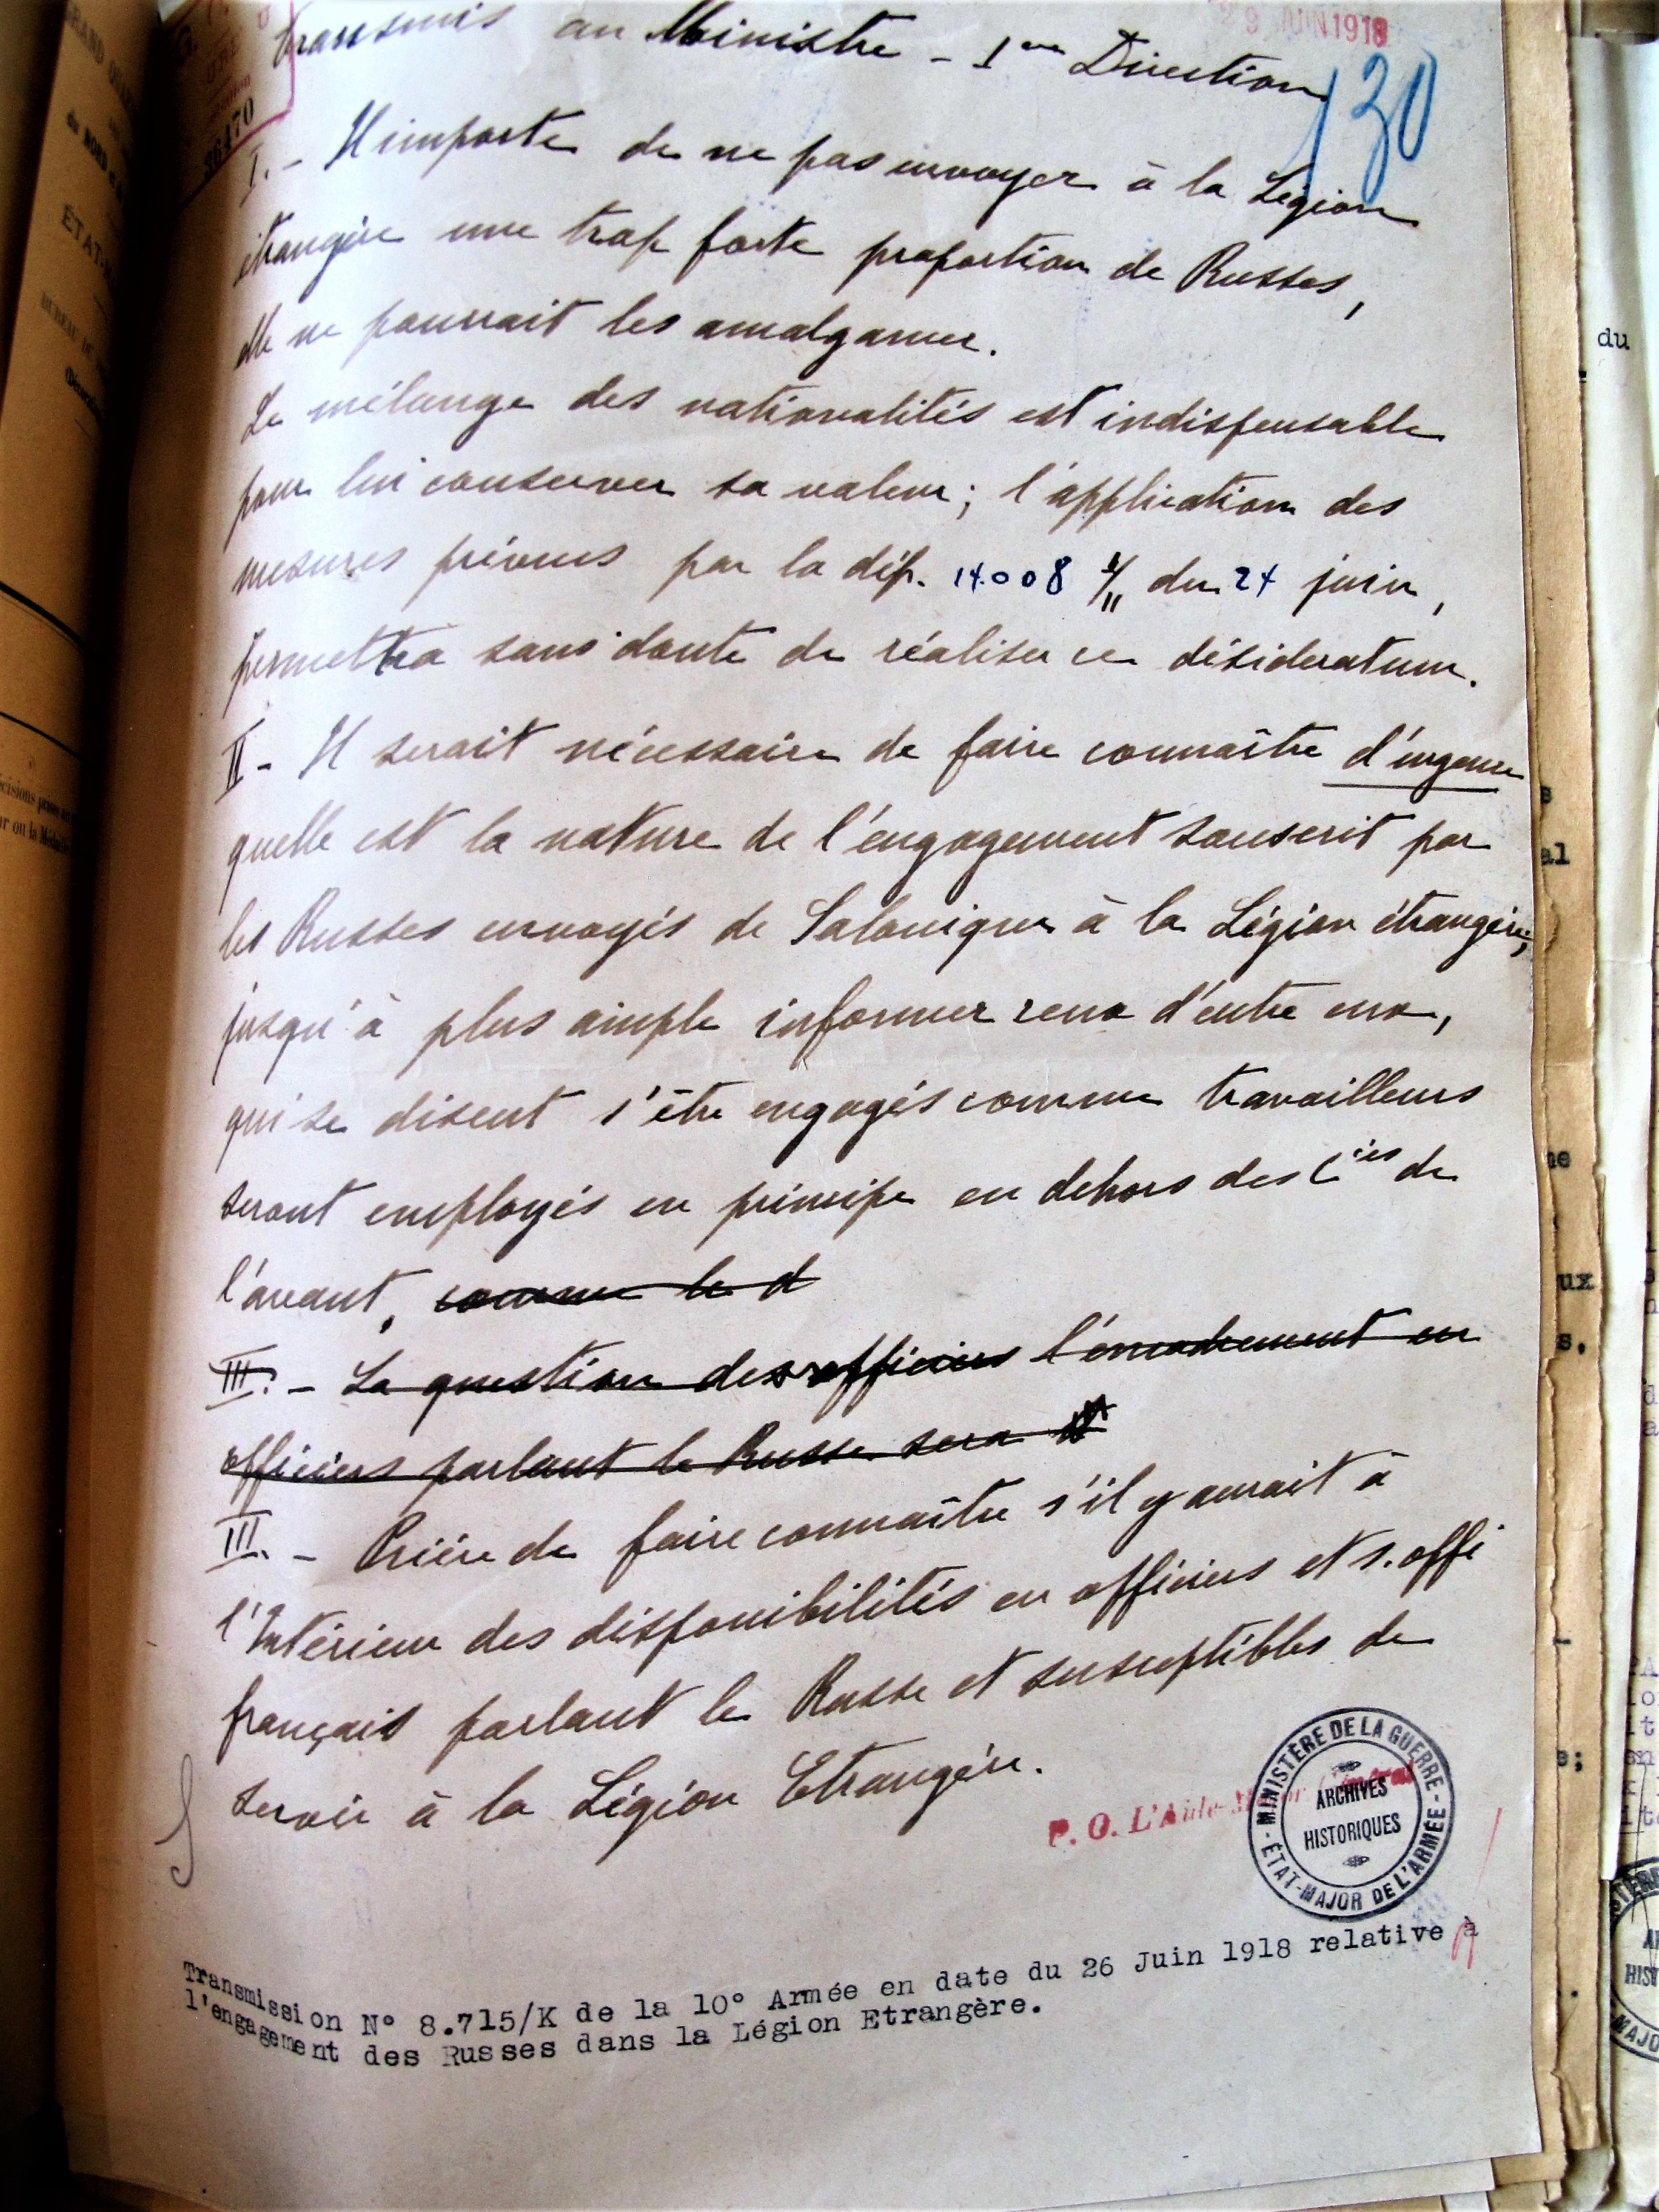 29 JUIN 1918
130
36470
transmis au Ministre - 1ère Direction
I. - Il importe de ne pas envoyer à la Légion
étrangère une trop forte proportion de Russes,
elle ne pourrait les amalgamer.
Le mélange des nationalités est indispensable
pour lui conserver sa valeur ; l'application des
mesures prévues par la dép. 14.008 1/11 du 24 juin,
permettra sans doute de réaliser ce désideratum.
II - Il serait nécessaire de faire connaître d'urgence
quelle est la nature de l'engagement souscrit par
les Russes envoyés de Salonique à la Légion étrangère,
jusqu'à plus ample informer ceux d'entre eux,
qui se disent s'être engagés comme travailleurs
seront employés en principe en dehors des Cies de
l'avant, comme le d
III. - La question des officiers l'encadrement en
officiers parlant le Russe sera
III. - Prière de faire connaître s'il y aurait à
l'Intérieur des disponibilités en officiers et s. offi
français parlant le Russe et susceptibles de
servir à la Légion Etrangère.
P. O. L'Aide-Major
MINISTÈRE DE LA GUERRE
ARCHIVES
HISTORIQUES
ÉTAT-MAJOR DE L'ARMÉE
Transmission N° 8.715/K de la 10° Armée en date du 26 Juin 1918 relative à
l'engagement des Russes dans la Légion Etrangère.
du